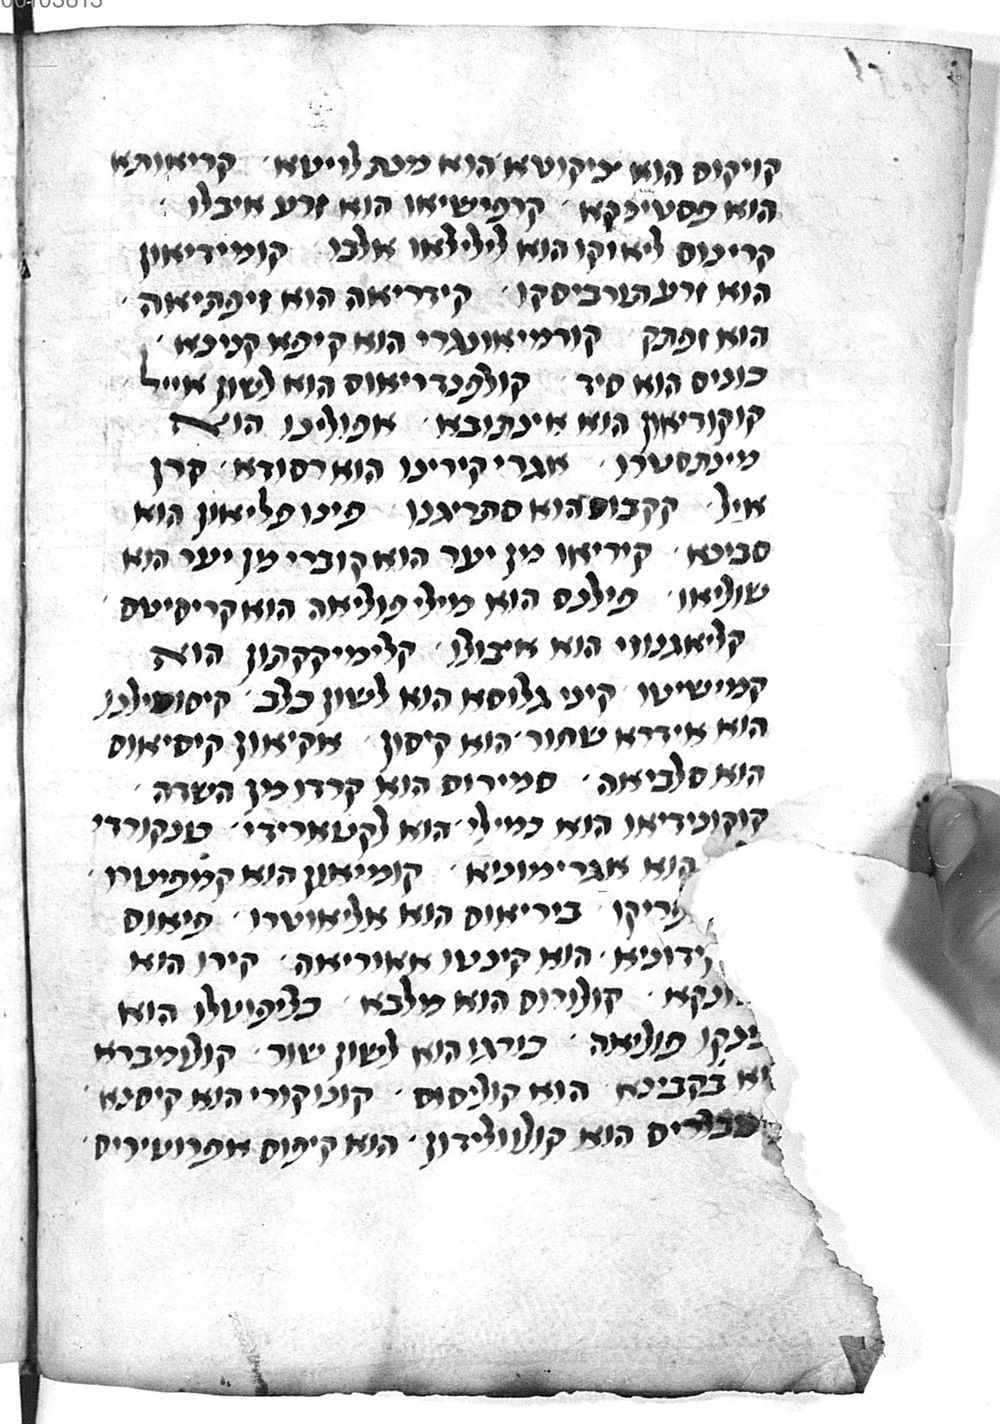 00103813
קויקוס הוא ציקוטא הוא מנת לויטא׳ קריאותא
הוא פסטינקא׳ קרפישיאו הוא זרע איבלו׳
קרינוס ליאוקו הוא לילילאו אלבו׳ קומידיאון
הוא זרע הטרביסקו׳ קידריאה הוא זיפתיאה׳
הוא זפתק׳ קורמיאונגרי הוא קיפא קנינא׳
כוניס הוא סיד׳ קולפנדריאוס הוא לשון אייל׳
קוקוריאון הוא אינתובא׳ אפולינו הוא
מינתסטרו׳ אגרי קירינו הוא רסודא׳ קרן
איל׳ קקבוס הוא סתריגנו׳ פינו פליאון הוא
סבינא׳ קיריאו מן יער הוא קוברי מן יער הוא
שוליאו׳ פילנס הוא מילי פוליאה הוא קריסיטס׳
קליאגנווי הוא איבולו׳ קלימיקקתון הוא
קמישיטו׳ קיני גלוסא הוא לשון כלב׳
הוא אידרא שחור הוא קיסון׳ אקיאון קיסיאוס
הוא סלביאה׳ סמירוס הוא קרדו מן השדה׳
קוקונידיאו הוא כמילי הוא לקטארידי׳ טנקורדי
הוא אגרימוניא׳ קומיאון הוא קמפיטרו׳
פריקו׳ ביריאוס הוא אליאוטרו׳ פיאוס
קידוניא׳ הוא קינטו אאוריאה׳ קירו הוא
ונקא׳ קולורוס הוא מלבא׳ כליפוטלו הוא
ינקו פוליאה׳ כורגו הוא לשון שור׳ קולומברא
בקבינא׳ הוא קוליסוס׳ קונוקורי הוא קיסנא׳
הוא קולוולידון׳ הוא קיפוס אפרוטיריס׳